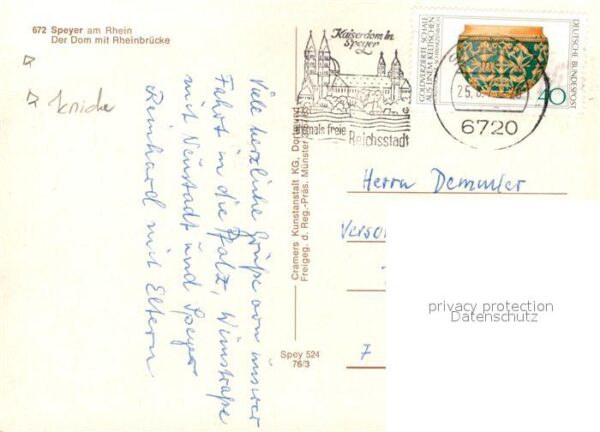 672 Speyer am Rhein
Der Dom mit Rheinbrücke
Knicke
Viele herzliche Grüße von unserer
Fahrt in die Pfalz, Weinstraße
mit Neustadt und Speyer
Reinhard mit Eltern
Cramers Kunstanstalt KG, Dortmund
Freigeg. d. Reg.-Präs. Münster
Spey 524
76/3
Kaiserdom in
Speyer
mals freie Reichsstadt
GOLDVERZIERTE SCHALE
AUS EINEM KELTISCHEN
DEUTSCHE BUNDESPOST
40
25.
6720
Herrn Demmler
Verso
7
privacy protection
Datenschutz